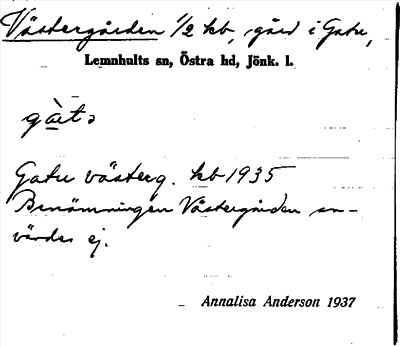 Västergården 1/2 kb, gård i Gatu,
Lemnhults sn, Östra hd, Jönk. l.
Gatu västerg. kb 1935
Benämningen Västergården an-
vändes ej.
Annalisa Anderson 1937